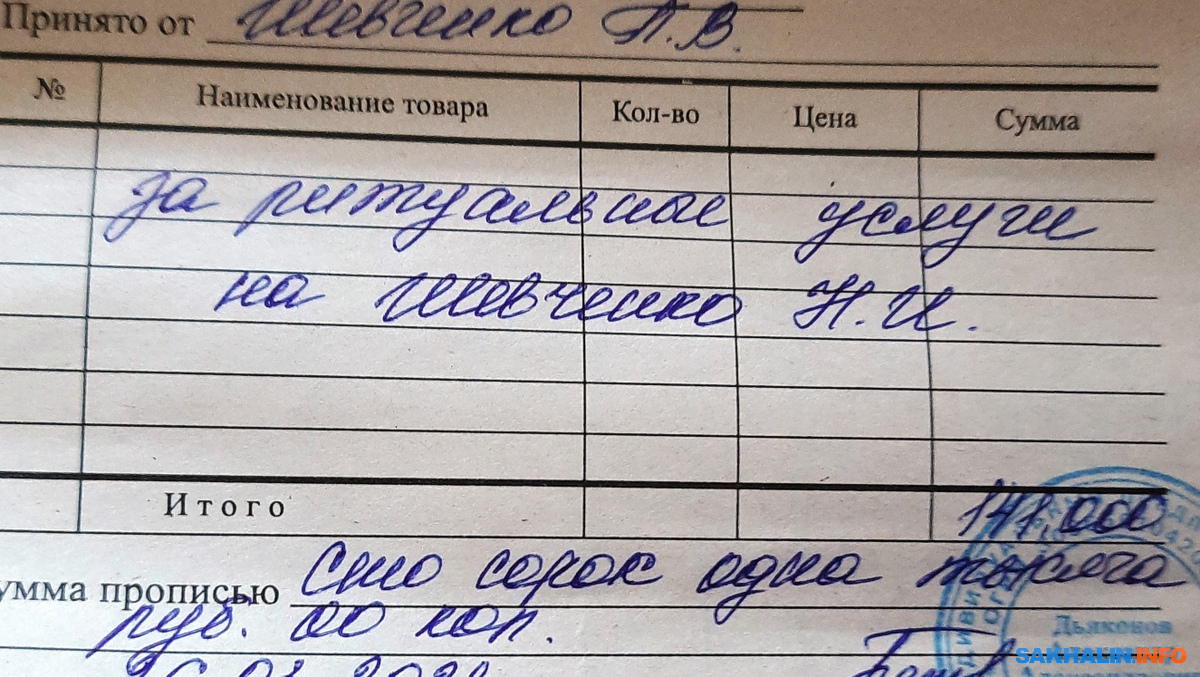 Принято от Шевченко А.В.
№ Наименование товара Кол-во Цена Сумма
за ритуальные услуги
на Шевченко Н.И.
Итого 141,000
умма прописью Сто сорок одна тысяча
руб. 00 коп.
Дьяконов
SAKHALIN.INFO